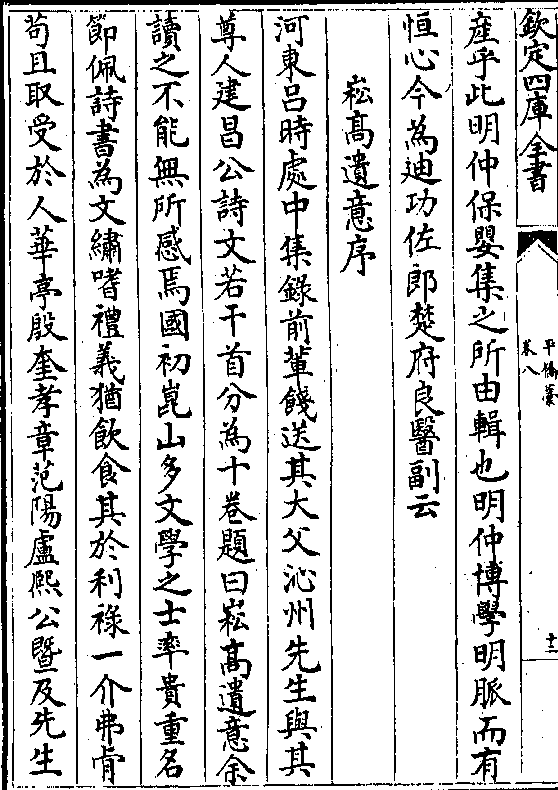 欽定四庫全書
平橋藁
卷八
十二
産乎此明仲保嬰集之所由輯也明仲博學明脈而有
恒心今為迪功佐郎楚府良醫副云
崧髙遺意序
河東吕時處中集錄前輩餞送其大父沁州先生與其
尊人建昌公詩文若干首分為十卷題曰崧髙遺意余
讀之不能無所感焉國初崑山多文學之士率貴重名
節佩詩書為文繡嗜禮義猶飲食其於利祿一介弗肯
茍且取受於人華亭殷奎孝章范陽盧熙公暨及先生